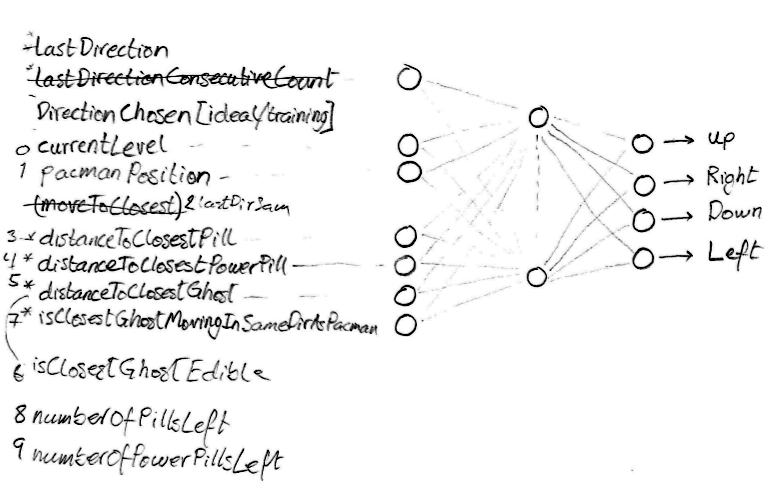 *lastDirection
*lastDirectionConsecutiveCount
DirectionChosen [ideal/training]
0 currentLevel
1 pacmanPosition
(moveToClosest) 2 lastDir
3 * distanceToClosestPill
4 * distanceToClosestPowerPill
5 * distanceToClosestGhost
7 * isClosestGhostMovingInSameDirAsPacman
6 isClosestGhostEdible
8 numberOfPillsLeft
9 numberOfPowerPillsLeft
→ up
→ Right
→ Down
→ Left